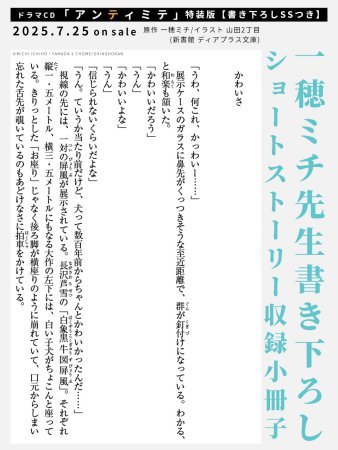 ドラマCD「アンティミテ」特装版【書き下ろしSSつき】
2025.7.25 on sale
原作 一穂ミチ/イラスト 山田2丁目
(新書館 ディアプラス文庫)
©MICHI ICHIHO・YAMADA 2 CHOME/SHINSHOKAN
一穂ミチ先生書き下ろし
ショートストーリー収録小冊子
かわいさ
「うわ、何これ、かっわいー……」
展示ケースのガラスに鼻先がくっつきそうな至近距離で、群が釘付けになっている。わかる、
と和楽も頷いた。
「かわいいだろう」
「うん」
「かわいいよな」
「うん」
「信じられないくらいだよな」
「うん。ていうか当たり前だけど、犬って数百年前からちゃんとかわいかったんだ……」
視線の先には、一対の屏風が展示されている。長沢芦雪の「白象黒牛図屏風」。それぞれ
縦一・五メートル、横三・五メートルにもなる大作の左下には、白い子犬がちょこんと座って
いる。きりっとした「お座り」じゃなく後ろ脚が横座りのように崩れていて、口元からしまい
忘れた舌先が覗いているのもあどけなさに拍車をかけている。